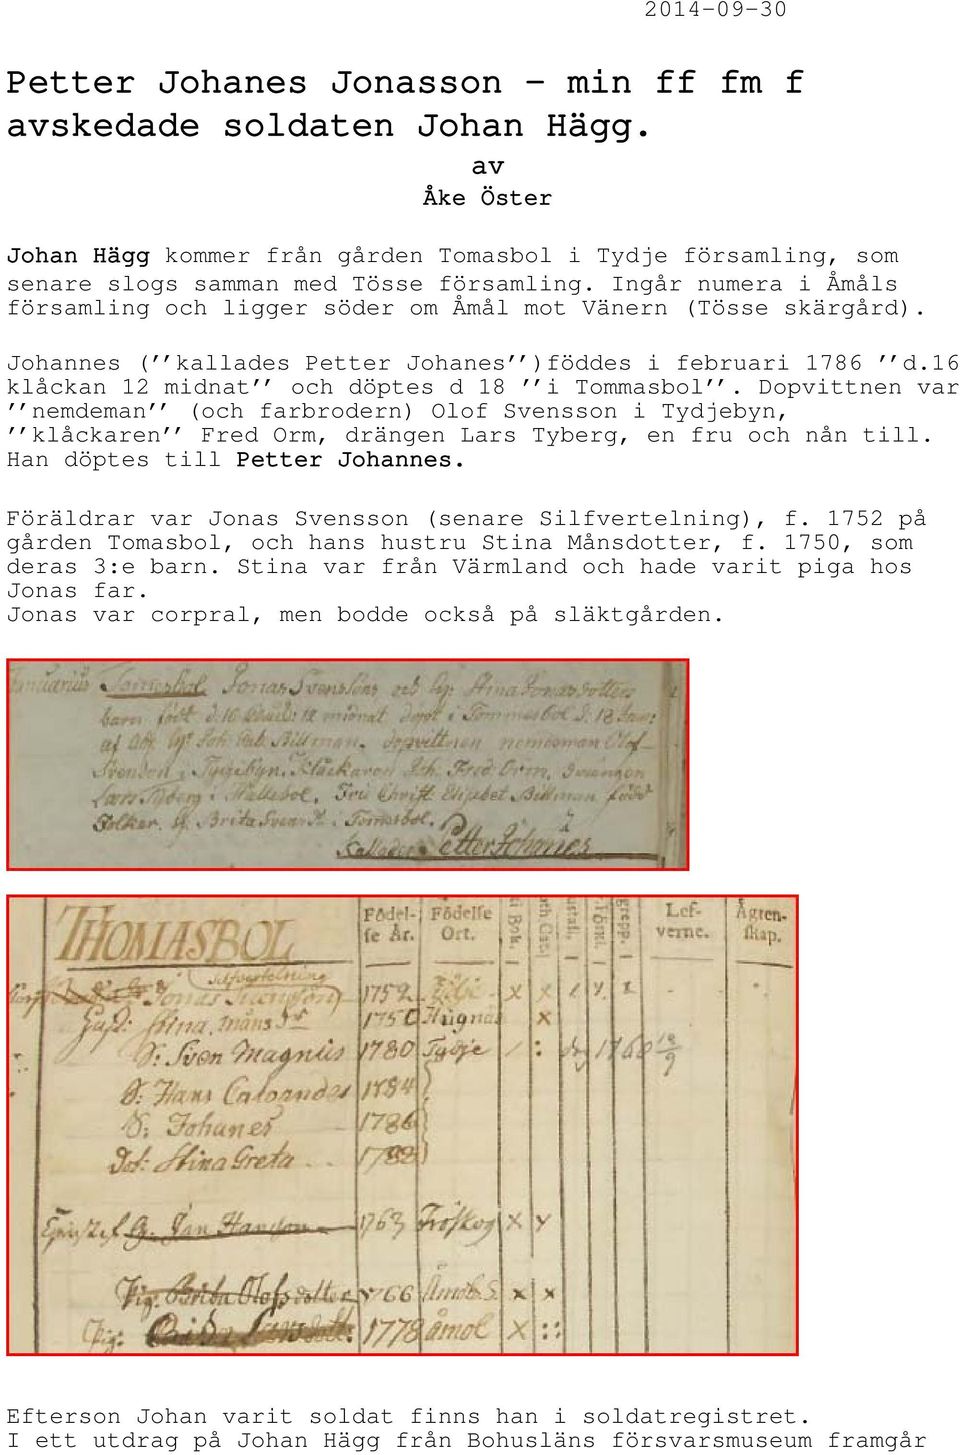 2014-09-30
Petter Johanes Jonasson - min ff fm f
avskedade soldaten Johan Hägg.
av
Åke Öster
Johan Hägg kommer från gården Tomasbol i Tydje församling, som
senare slogs samman med Tösse församling. Ingår numera i Åmåls
församling och ligger söder om Åmål mot Vänern (Tösse skärgård).
Johannes (''kallades Petter Johanes'')föddes i februari 1786 ''d.16
klåckan 12 midnat'' och döptes d 18 ''i Tommasbol''. Dopvittnen var
''nemdeman'' (och farbrodern) Olof Svensson i Tydjebyn,
''klåckaren'' Fred Orm, drängen Lars Tyberg, en fru och nån till.
Han döptes till Petter Johannes.
Föräldrar var Jonas Svensson (senare Silfvertelning), f. 1752 på
gården Tomasbol, och hans hustru Stina Månsdotter, f. 1750, som
deras 3:e barn. Stina var från Värmland och hade varit piga hos
Jonas far.
Jonas var corpral, men bodde också på släktgården.
Januarius Tomesbol Jonas Svenssons och Stina Jonasdotters
barn född d: 16 12 midnat i Tommesbol d: 18
af Billman. dopvittnen nemdeman Olof
i Tydjebyn. Klåckaren Joh. Fred Orm.
Lars Tyberg i Fru Christ: Billman
Folker. Brita i Tomasbol.
Kallades Petter Johanes
THOMASBOL Födel- se År. Födelse Ort. i Bok. Lef- verne. Ägten- skap.
Silfvertelning
Jonas 1752 x x
Hust: Stina Måns 1750 x
S: Sven Magnus 1780 Tydje 1760
S: Hans 1784
S: Johanes 1786
Dot: Stina Greta 1788
Jan 1763 Fröskog x
Pig: Brita Olofsdotter 1766 x x
Pig: 1778 Åmol x
Efterson Johan varit soldat finns han i soldatregistret.
I ett utdrag på Johan Hägg från Bohusläns försvarsmuseum framgår